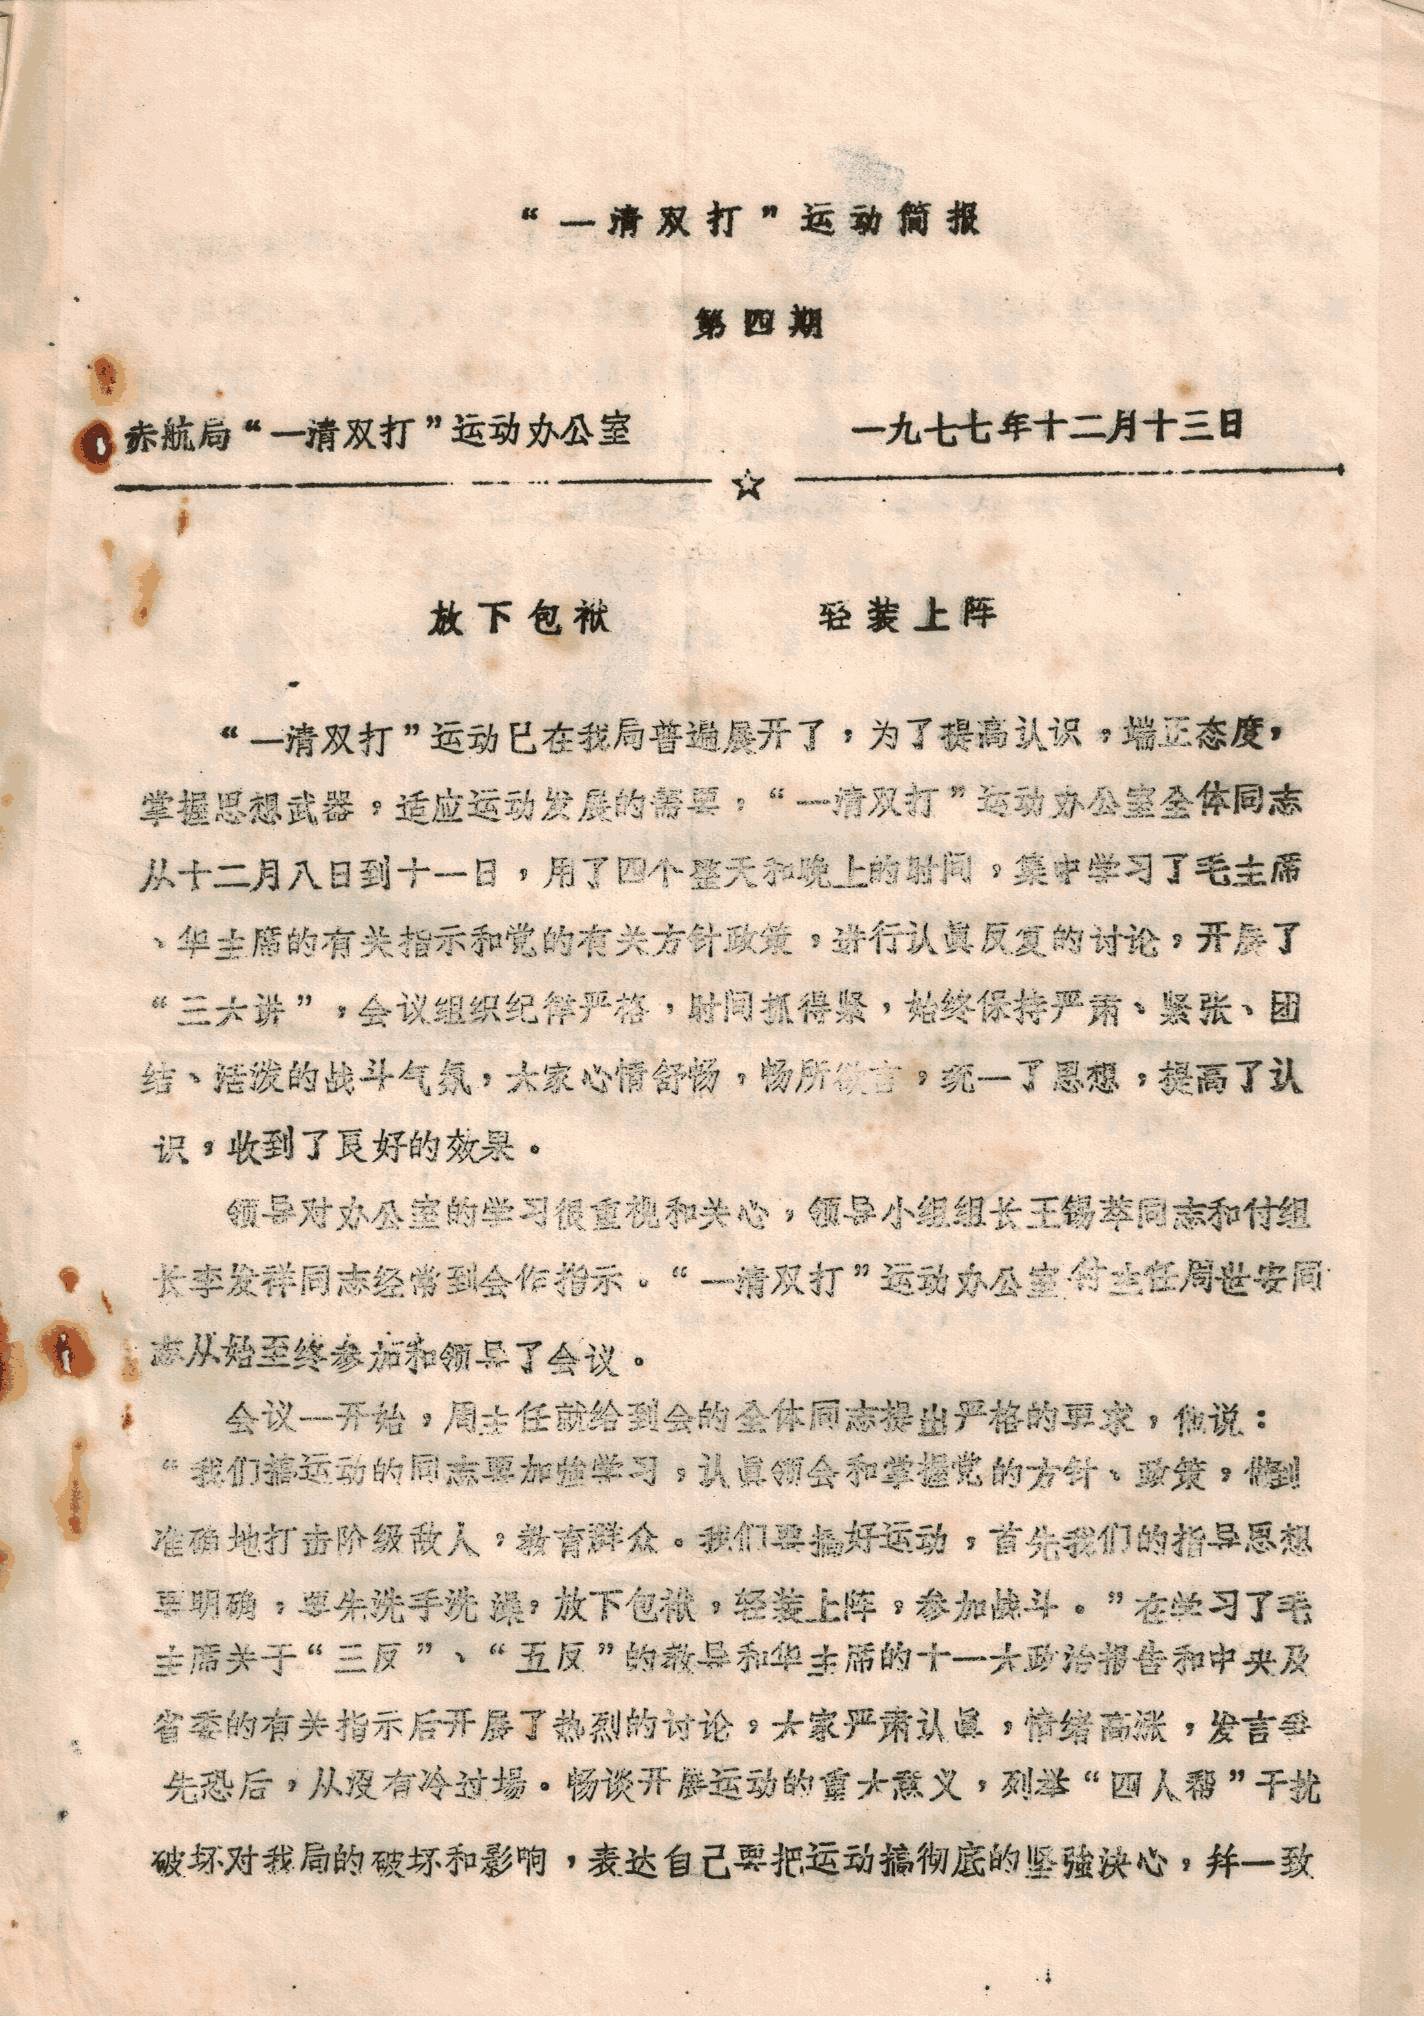 “一清双打”运动简报
第四期
赤航局“一清双打”运动办公室 一九七七年十二月十三日
放下包袱 轻装上阵
“一清双打”运动已在我局普遍展开了，为了提高认识，端正态度，
掌握思想武器，适应运动发展的需要，“一清双打”运动办公室全体同志
从十二月八日到十一日，用了四个整天和晚上的时间，集中学习了毛主席
、华主席的有关指示和党的有关方针政策，进行认真反复的讨论，开展了
“三大讲”，会议组织纪律严格，时间抓得紧，始终保持严肃、紧张、团
结、活泼的战斗气氛，大家心情舒畅，畅所欲言，统一了思想，提高了认
识，收到了良好的效果。
领导对办公室的学习很重视和关心，领导小组组长王锡萃同志和付组
长李发祥同志经常到会作指示。“一清双打”运动办公室付主任周世安同
志从始至终参加和领导了会议。
会议一开始，周主任就给到会的全体同志提出严格的要求，他说：
“我们搞运动的同志要加强学习，认真领会和掌握党的方针、政策，做到
准确地打击阶级敌人，教育群众。我们要搞好运动，首先我们的指导思想
要明确，要先洗手洗澡，放下包袱，轻装上阵，参加战斗。”在学习了毛
主席关于“三反”、“五反”的教导和华主席的十一大政治报告和中央及
省委的有关指示后开展了热烈的讨论，大家严肃认真，情绪高涨，发言争
先恐后，从没有冷过場。畅谈开展运动的重大意义，列举“四人帮”干扰
破坏对我局的破坏和影响，表达自己要把运动搞彻底的坚强决心，并一致